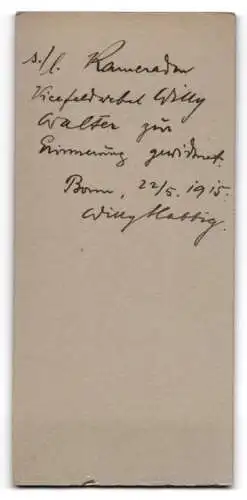 s./l. Kameraden
Vicefeldwebel Willy
Walter zur
Erinnerung gewidmet.
Bonn, 22/5. 1915.
Willy Hattig.